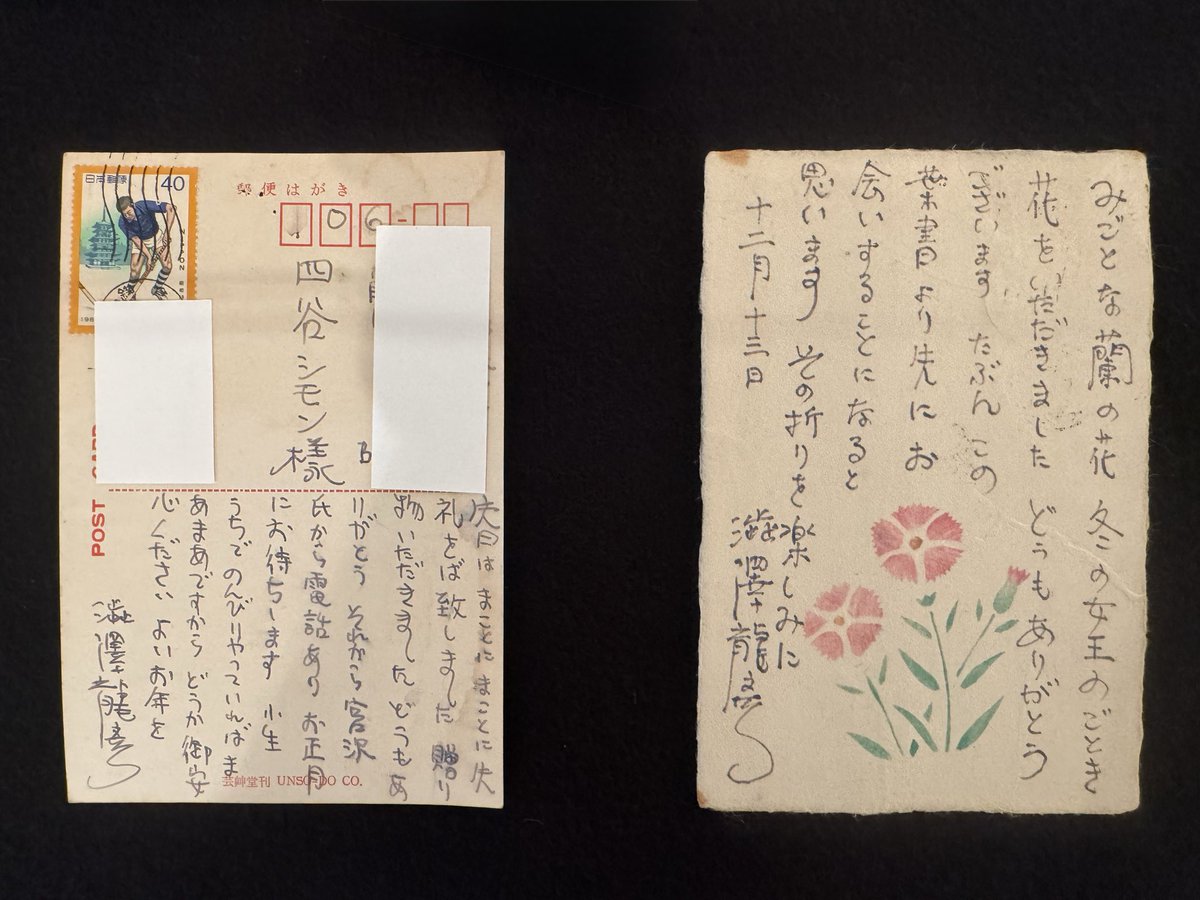 日本郵便 40
郵便はがき
106
四谷シモン様
先日はまことにまことに失
礼をば致しました 贈り
物いただきました どうもあ
りがとう それから宮沢
氏から電話あり お正月
にお待ちします 小生
うちでのんびりやっていればま
あまあですから どうか御安
心ください よいお年を
澁澤龍彦
POST CARD
芸艸堂刊 UNSO-DO CO.
みごとな蘭の花 冬の女王のごとき
花をいただきました どうもありがとう
ございます たぶん この
葉書より先に お
会いすることになると
思います その折りを楽しみに
十二月十三日
澁澤龍彦